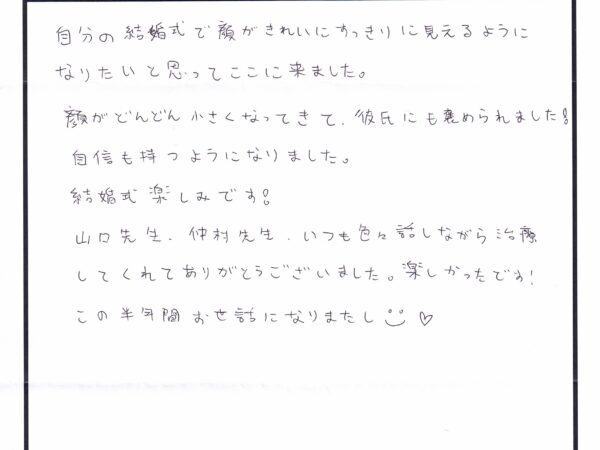 自分の結婚式で顔がきれいにすっきりに見えるように
なりたいと思ってここに来ました。
顔がどんどん小さくなってきて、彼氏にも褒められました!
自信も持つようになりました。
結婚式楽しみです!
山口先生、仲村先生、いつも色々話しながら治療
してくれてありがとうございました。楽しかったです!
この半年間お世話になりまたし